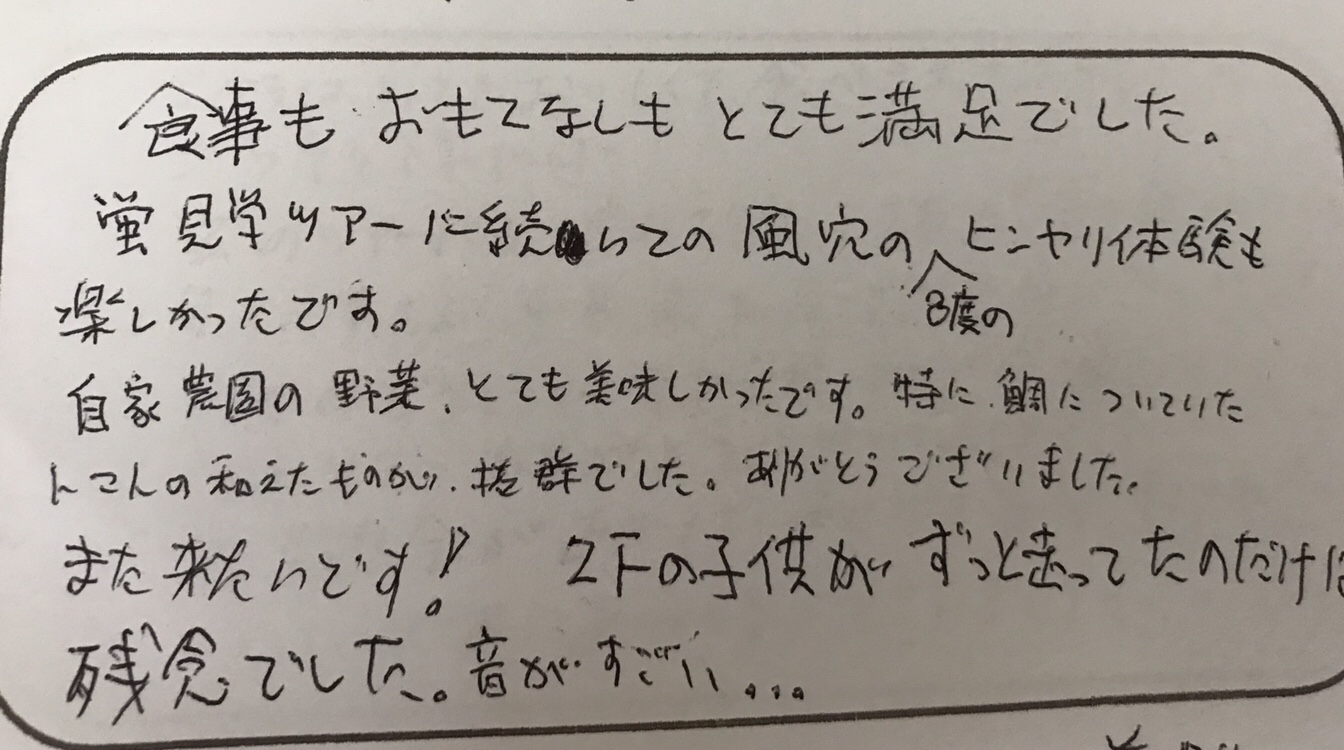 食事も おもてなしも とても満足でした。
蛍見学ツアーに続いての 風穴の 8度の ヒンヤリ体験も
楽しかったです。
自家農園の野菜、とても美味しかったです。特に、鯛についていた
の和えたものが、抜群でした。ありがとうございました。
また来たいです! 2Fの子供がずっと走ってたのだけは
残念でした。音がすごい...